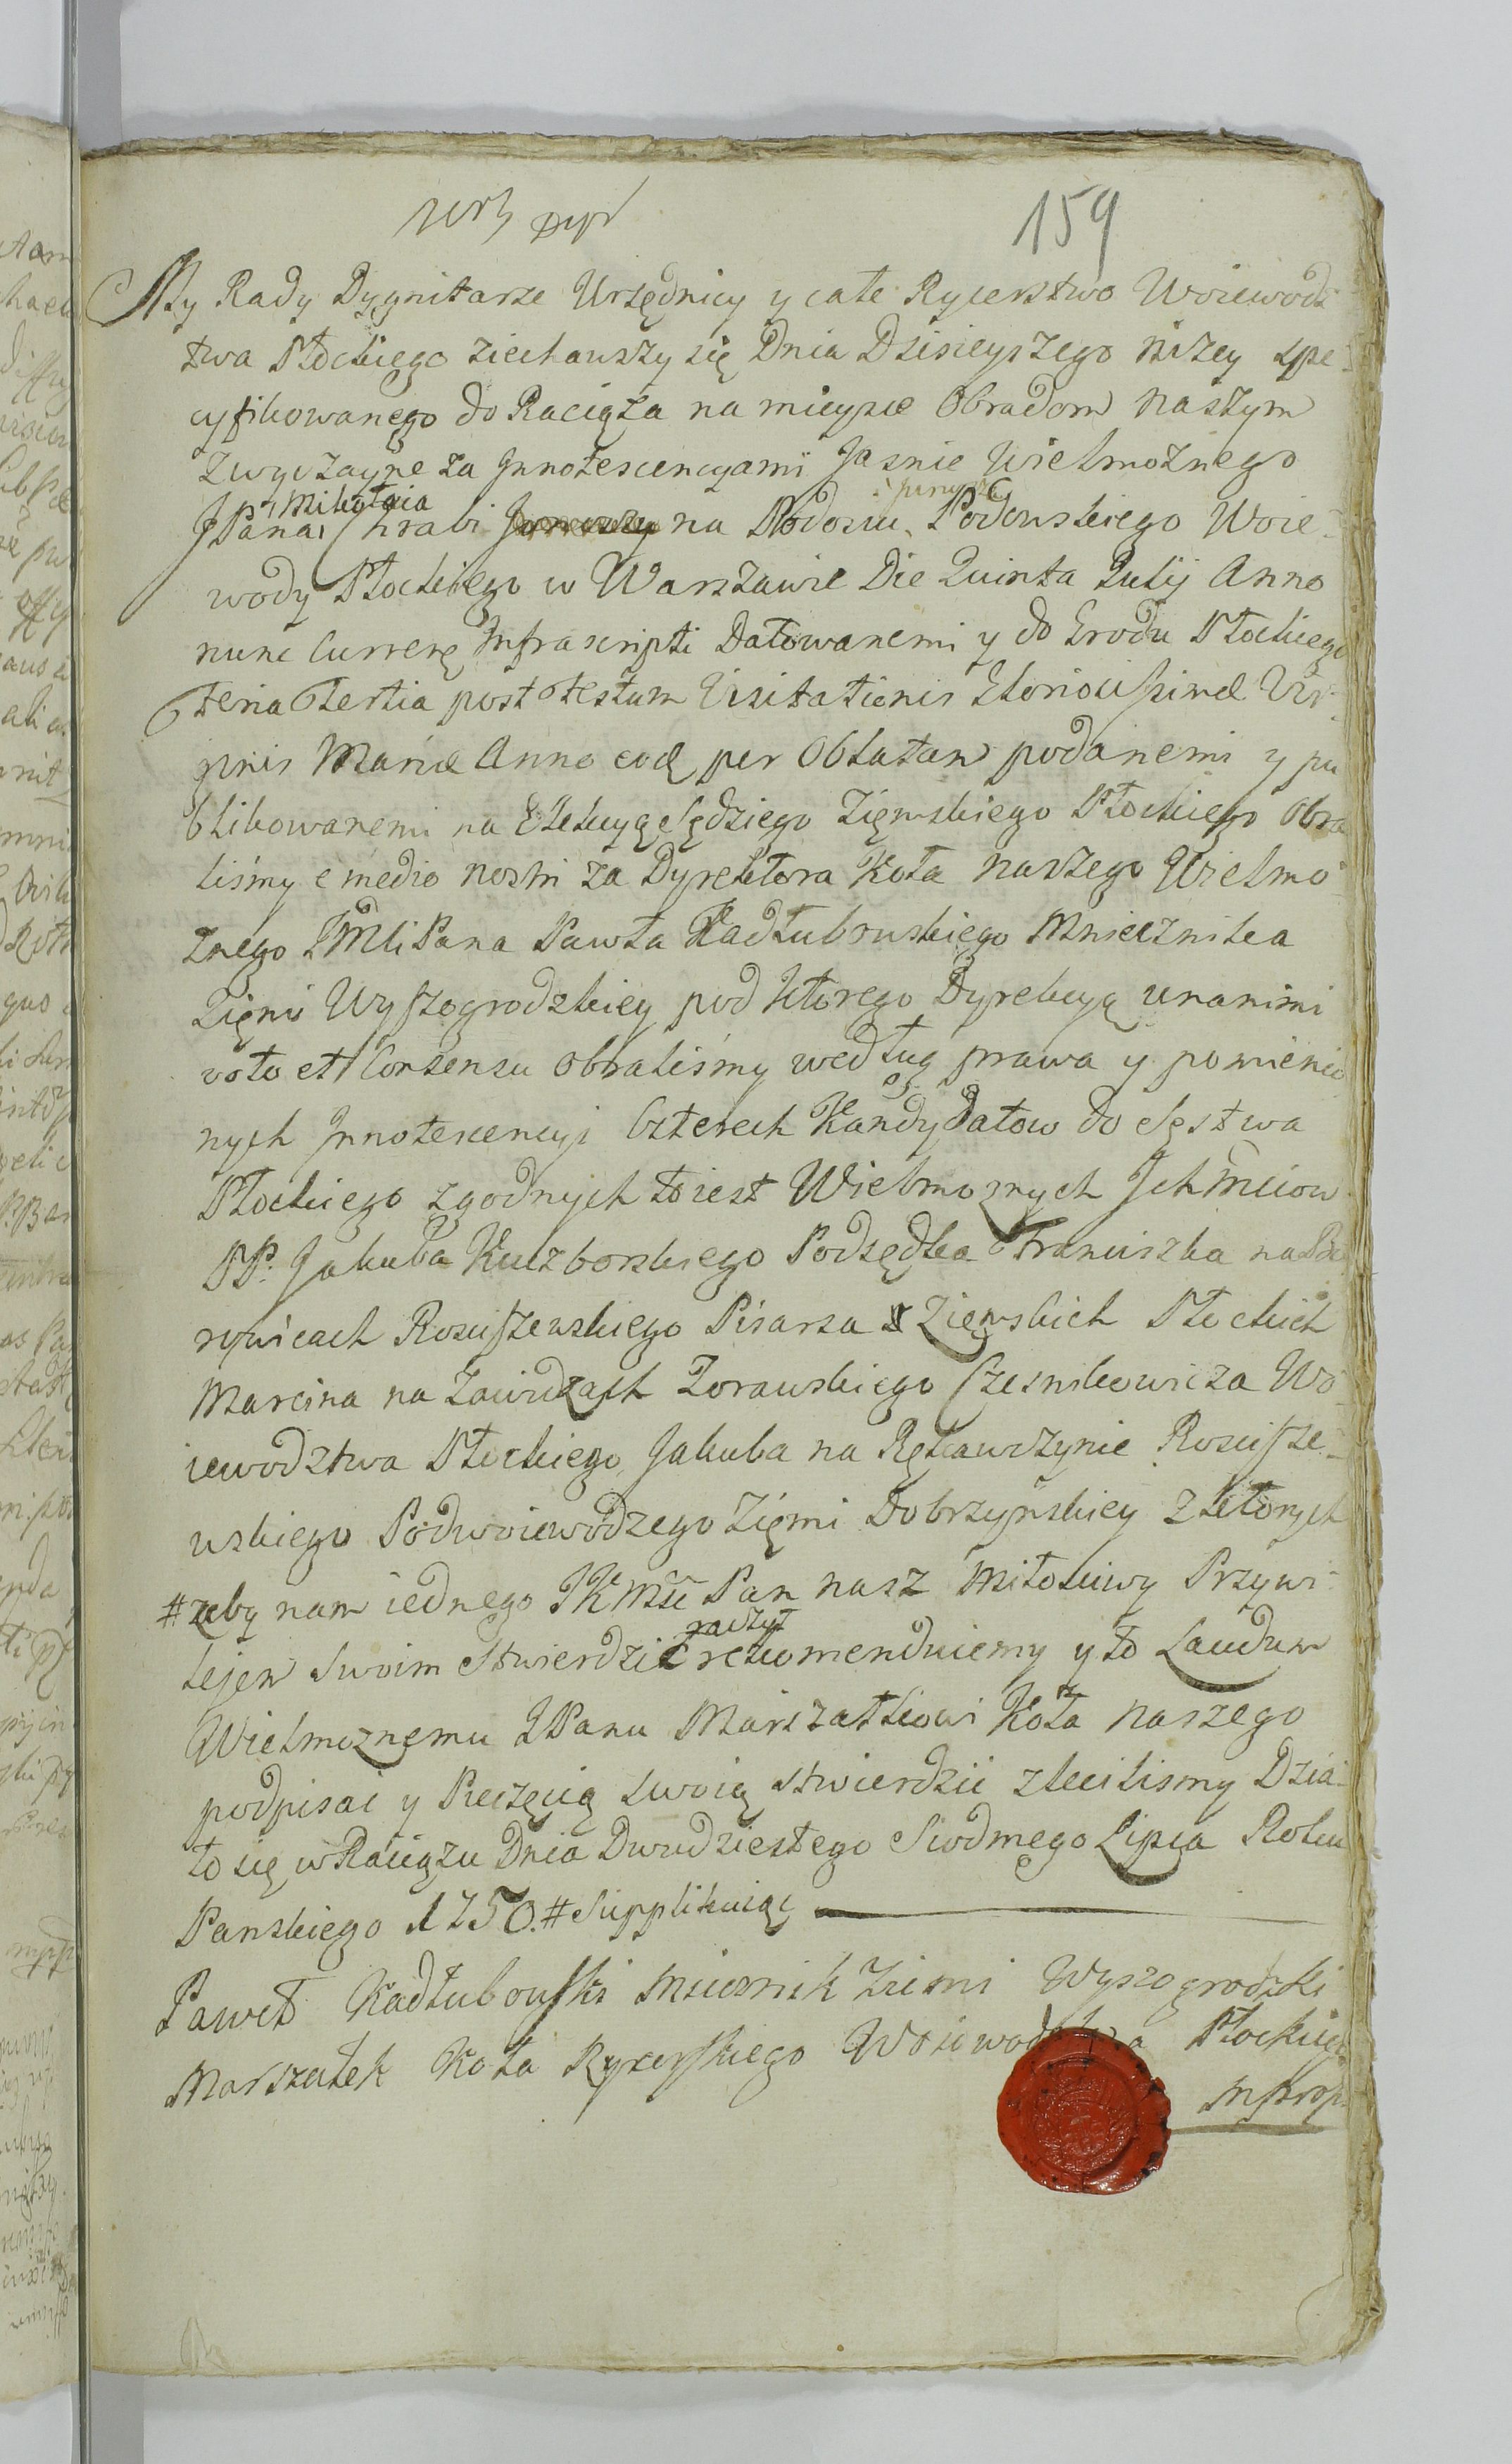 159
My Rady Dygnitarze Urzędnicy y całe Rycerstwo Woiewodz
twa Płockiego ziechawszy się Dnia Dzisieyszego niżey spe-
cyfikowanego do Raciąża na mieysce Obradom naszym
zwyczayne za Jnnotescencyami Jasnie Wielmożnego
JPana Mikołaia Hrabi na Podosiu Podoskiego Woie-
wody Płockiego w Warszawie Die Quinta Julij Anno
nunc Currenę Infrascripti Datowanemi y do Grodu Płockiego
Feria Tertia post Festum Visitationis Gloriosissimæ Vir-
ginis Mariæ Anno eodę per Oblatam podanemi y pu
blikowanemi na Elekcyą Sędziego Ziemskiego Płockiego Obra
liśmy e medio nostri za Dyrektora Koła naszego Wielmo
żnego JMci Pana Pawła Kadłubowskiego Miecznika
Ziemi Wyszogrodzkiey pod ktorego Dyrekcyą unanimi
voto et Consensu obraliśmy według prawa y pomienio
nych Jnnotescencyi Czterech Kandydatow do Sęstwa
Płockiego zgodnych to iest Wielmożnych Jchmciow
PP. Jakuba Kuczborskiego Podsędka Franciszka na
rowicach Rosciszewskiego Pisarza Ziemskich Płockich
Marcina na Zawidzach Zorawskiego Czesnikowicza Wo
iewodztwa Płockiego, Jakuba na Rękawczynie Roscisze-
wskiego Podwoiewodzego Ziemi Dobrzyńskiey z ktorych
# żeby nam iednego JKMść Pan nasz Miłościwy Przywi
lejem Swoim stwierdzić raczył rekomenduiemy y to Laudum
Wielmożnemu JPanu Marszałkowi Koła naszego
podpisać y Pieczęcią swoią stwierdzić zlecilismy Dzia-
ło się w Raciążu Dnia Dwudziestego Siodmego Lipca Roku
Panskiego 1750. # Supplikuiąc
Paweł Kadłubowski Miecznik Ziemi Wyszogrodzki
Marszałek Koła Rycerskiego Woiewodztwa Płockieg
mprop.